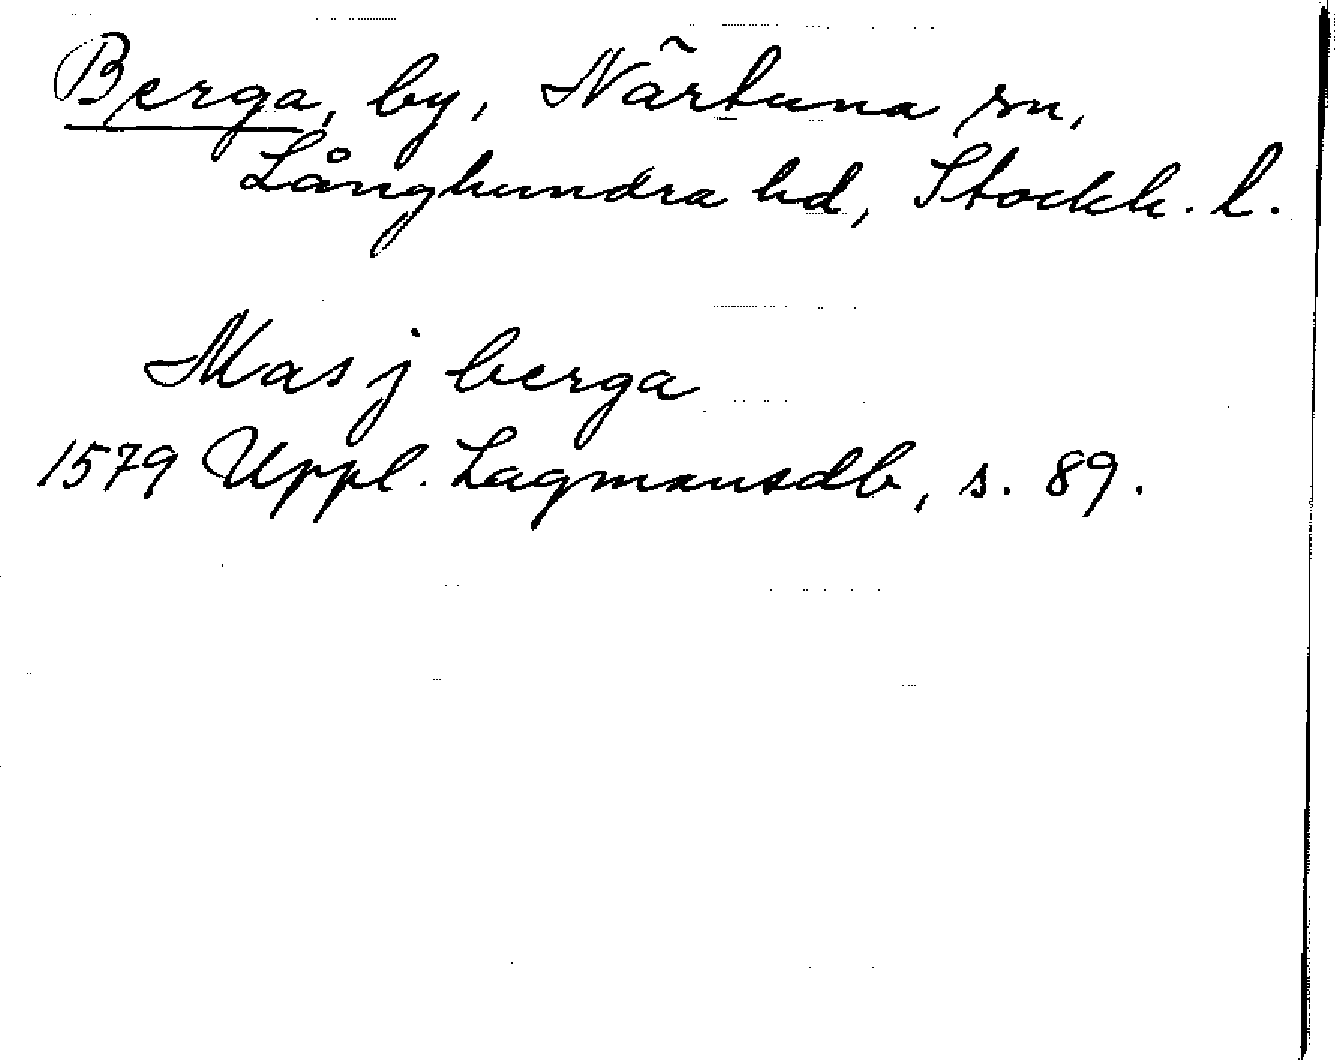 Berga, by, Närtuna sn,
Långhundra hd, Stockh. l.
Mas j berga
1579 Uppl. Lagmansdb, s. 89.